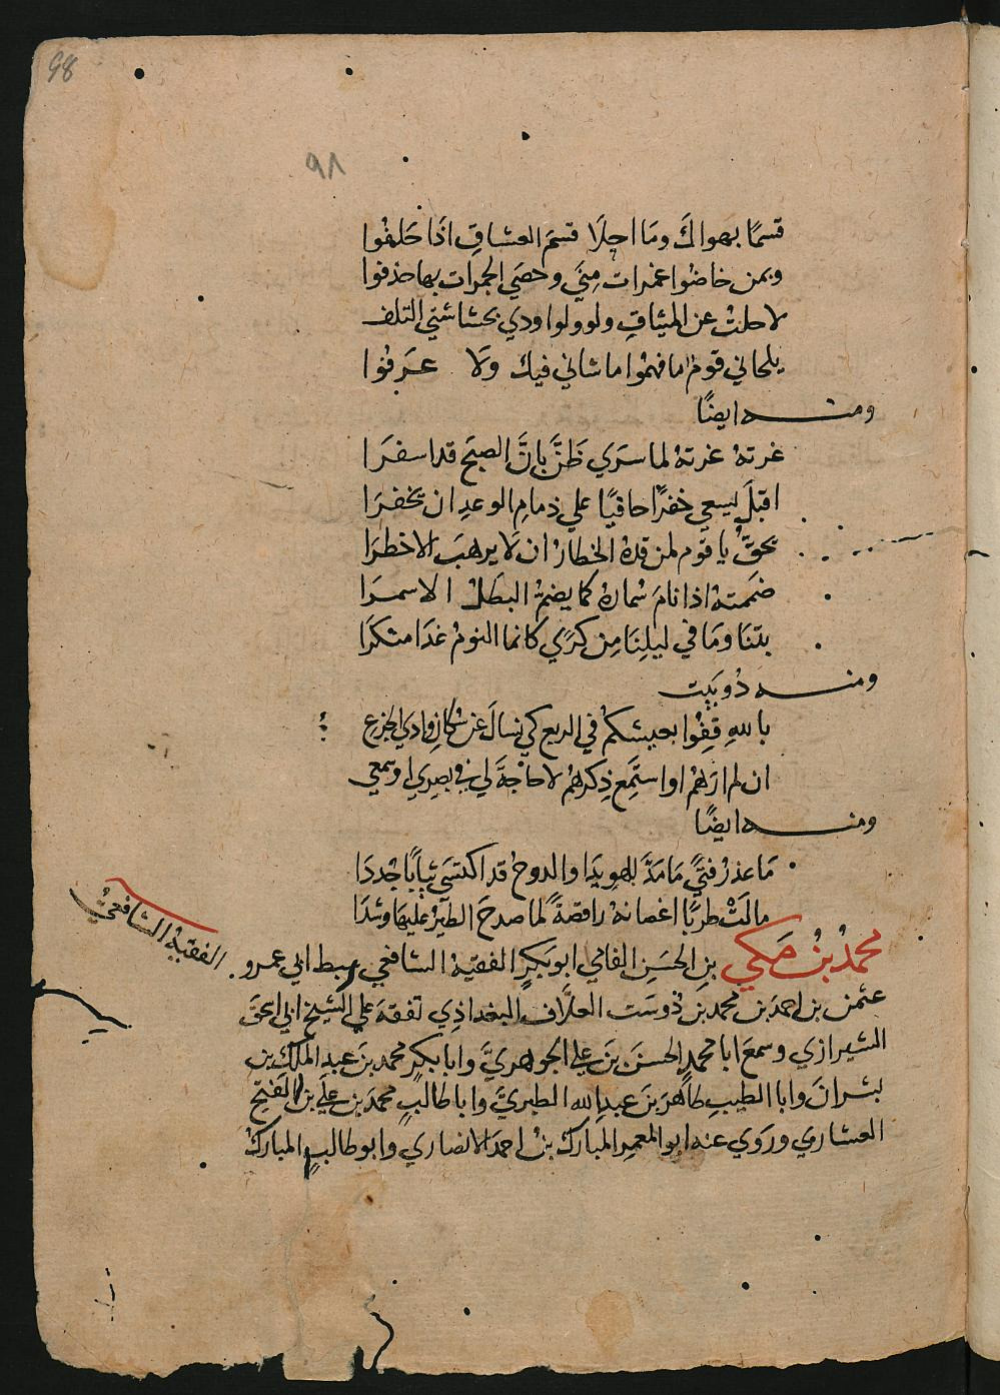 98
٩٨
قسمًا بهواكَ ومَا احلَا قسمَ العشاقِ اذَا حَلفُوا
وبمن خاضُوا غمرات مِنَي وحصَي الجمرات بها حذفوا
لا حلتُ عن الميثاقِ ولو ولوا ودي بحشاشتي التلف
يلحاني قومٌ ما فهمُوا ما شاني فيكَ ولَا عَرفُوا
ومنه ايضًا
غرتهُ غرتهُ لما سرَي ظَنَّ بانَّ الصبحَ قد اسفرَا
اقبلَ يسعي خفرًا حافيًا علي ذمامِ الوعدِ ان يخفرَا
بحقّ يا قوم لمن قدهُ الخطارُ ان لا يرهبَ الاخطرَا
ضممتهُ اذا نامَ سُمارهُ كما يضمُ البطَلُ الاسمرَا
بتنَا ومَا في ليلِنَا مِن كرَي كانما النومُ غدَا منكرَا
ومنه دُوبَيت
باللهِ قِفُوا بعيشكُم في الربع كي نسالَ عن سُكانِ وادي الجزع
ان لم ارَهُم او استَمِع ذِكرهُم لا حاجَةَ لي في بصري او سمعي
ومنه ايضًا
مَا عذرُ فتَيً مَا مَدَّ للهو يدَا والدوحُ قد اكتسَي ثيابًا جُددَا
مالَتْ طربًا اغصانهُ راقصةً لما صدحَ الطيرُ عليهَا وشدَا
الفقيهُ الشافعيُ
محمدُ بنُ مكي بنِ الحسَنِ الفامي ابو بكرٍ الفقيهُ الشافعي سبط ابي عمرو
عثمن بن احمدَ بن محمد بن دُوستَ العلَّافِ البغداذِي تفقهَ علي الشيخ ابي اسحقَ
الشيرازي وسمعَ ابا محمدٍ الحسنَ بنَ علي الجوهريَّ وابا بكرٍ محمدَ بنَ عبدِ الملكِ بنِ
بشرانَ وابا الطيبِ طاهرَ بنَ عبدِ الله الطبريَّ وابا طالبٍ محمدَ بن علي بن الفتحِ
العشاري وروَي عنه ابو المعمر المباركُ بنُ احمدَ الانصاري وابو طالبٍ المباركُ